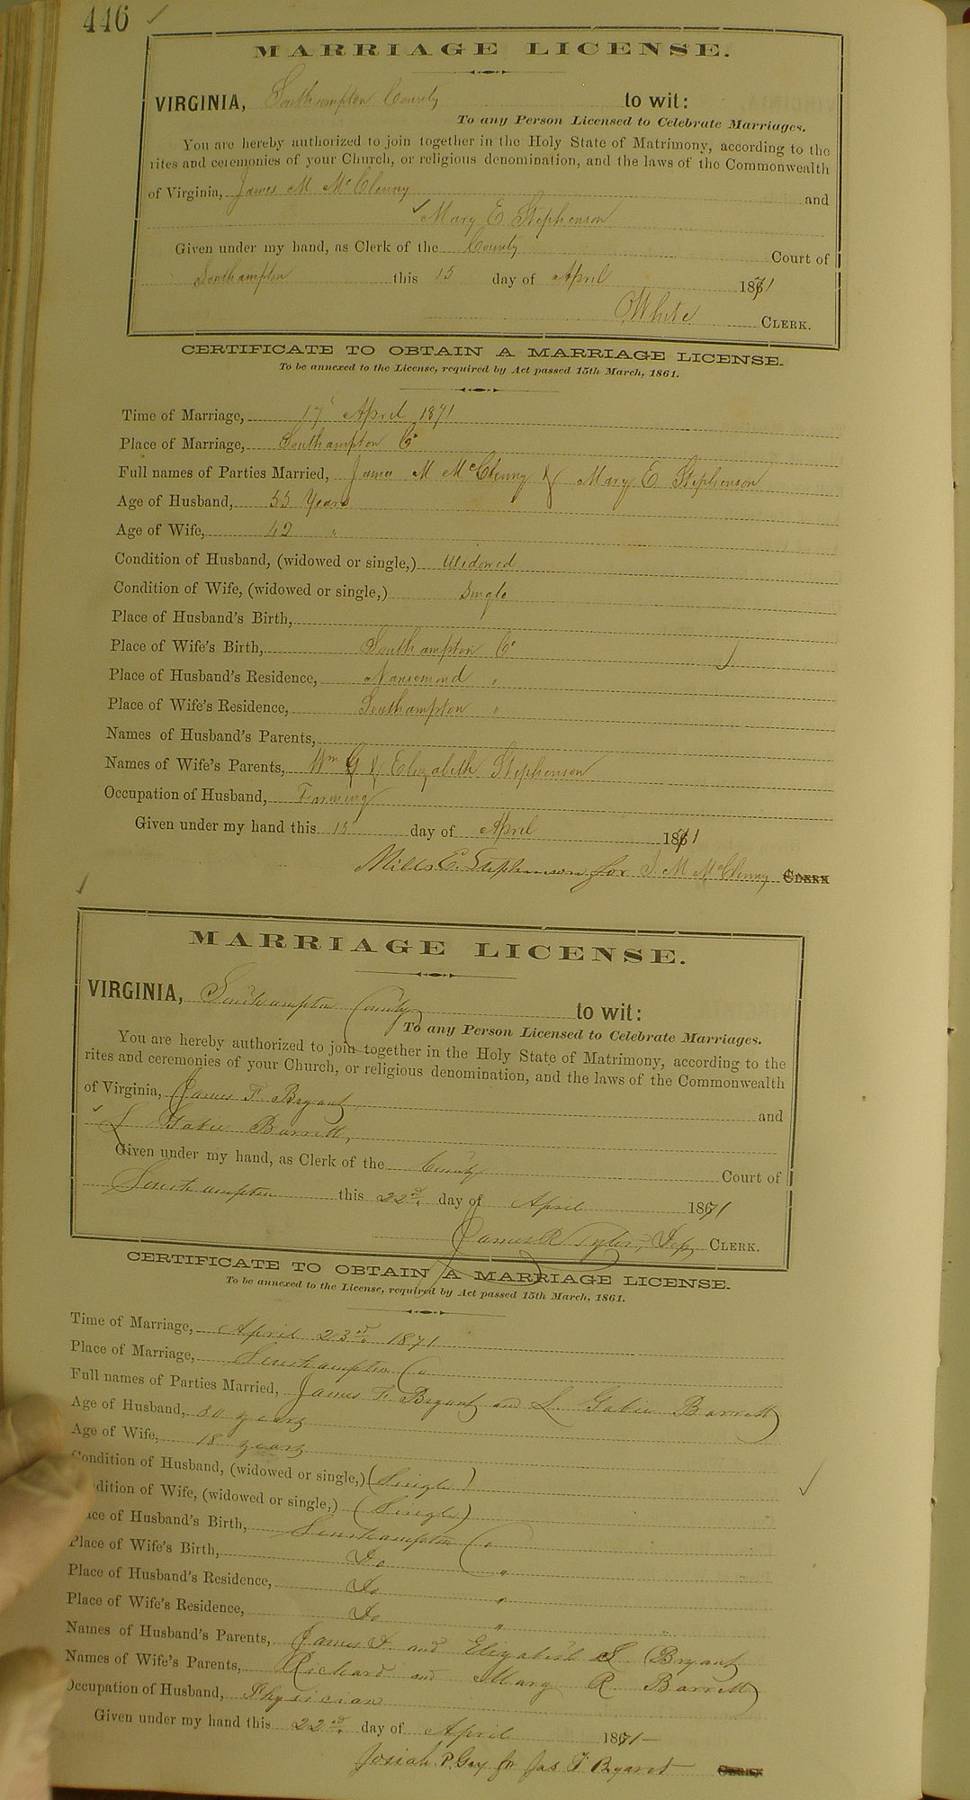 446
MARRIAGE LICENSE.
VIRGINIA, Southampton County to wit:
To any Person Licensed to Celebrate Marriages.
You are hereby authorized to join together in the Holy State of Matrimony, according to the
rites and ceremonies of your Church, or religious denomination, and the laws of the Commonwealth
of Virginia, James M McClenny and
Mary E Stephenson
Given under my hand, as Clerk of the County Court of
Southampton this 15 day of April 1871
White CLERK.
CERTIFICATE TO OBTAIN A MARRIAGE LICENSE.
To be annexed to the License, required by Act passed 15th March, 1861.
Time of Marriage, 17 April 1871
Place of Marriage, Southampton Co
Full names of Parties Married, James M McClenny & Mary E Stephenson
Age of Husband, 55 Years
Age of Wife, 42 "
Condition of Husband, (widowed or single,) Widowed
Condition of Wife, (widowed or single,) Single
Place of Husband's Birth,
Place of Wife's Birth, Southampton Co
Place of Husband's Residence, Nansemond "
Place of Wife's Residence, Southampton "
Names of Husband's Parents,
Names of Wife's Parents, Wm G & Elizabeth Stephenson
Occupation of Husband, Farming
Given under my hand this 15 day of April 1871
Mills E. Stephenson for J. M McClenny CLERK
MARRIAGE LICENSE.
VIRGINIA, Southampton County to wit:
To any Person Licensed to Celebrate Marriages.
You are hereby authorized to join together in the Holy State of Matrimony, according to the
rites and ceremonies of your Church, or religious denomination, and the laws of the Commonwealth
of Virginia, James F. Bryant and
L Gabie Barrett,
Given under my hand, as Clerk of the County Court of
Southampton this 22d. day of April 1871
James R Tyler, Dep. CLERK.
CERTIFICATE TO OBTAIN A MARRIAGE LICENSE.
To be annexed to the License, required by Act passed 15th March, 1861.
Time of Marriage, April 23d. 1871
Place of Marriage, Southampton Co
Full names of Parties Married, James F. Bryant and L. Gabie Barrett
Age of Husband, 30 years
Age of Wife, 18 years
Condition of Husband, (widowed or single,) (Single)
dition of Wife, (widowed or single,) (Single)
ace of Husband's Birth, Southampton Co
Place of Wife's Birth, Do "
Place of Husband's Residence, Do "
Place of Wife's Residence, Do " "
Names of Husband's Parents, James D. and Elizabeth S Bryant
Names of Wife's Parents, Richard and Mary R. Barrett
Occupation of Husband, Physician
Given under my hand this 22d. day of April 1871
Josiah P. Gay for Jas F Bryant CLERK